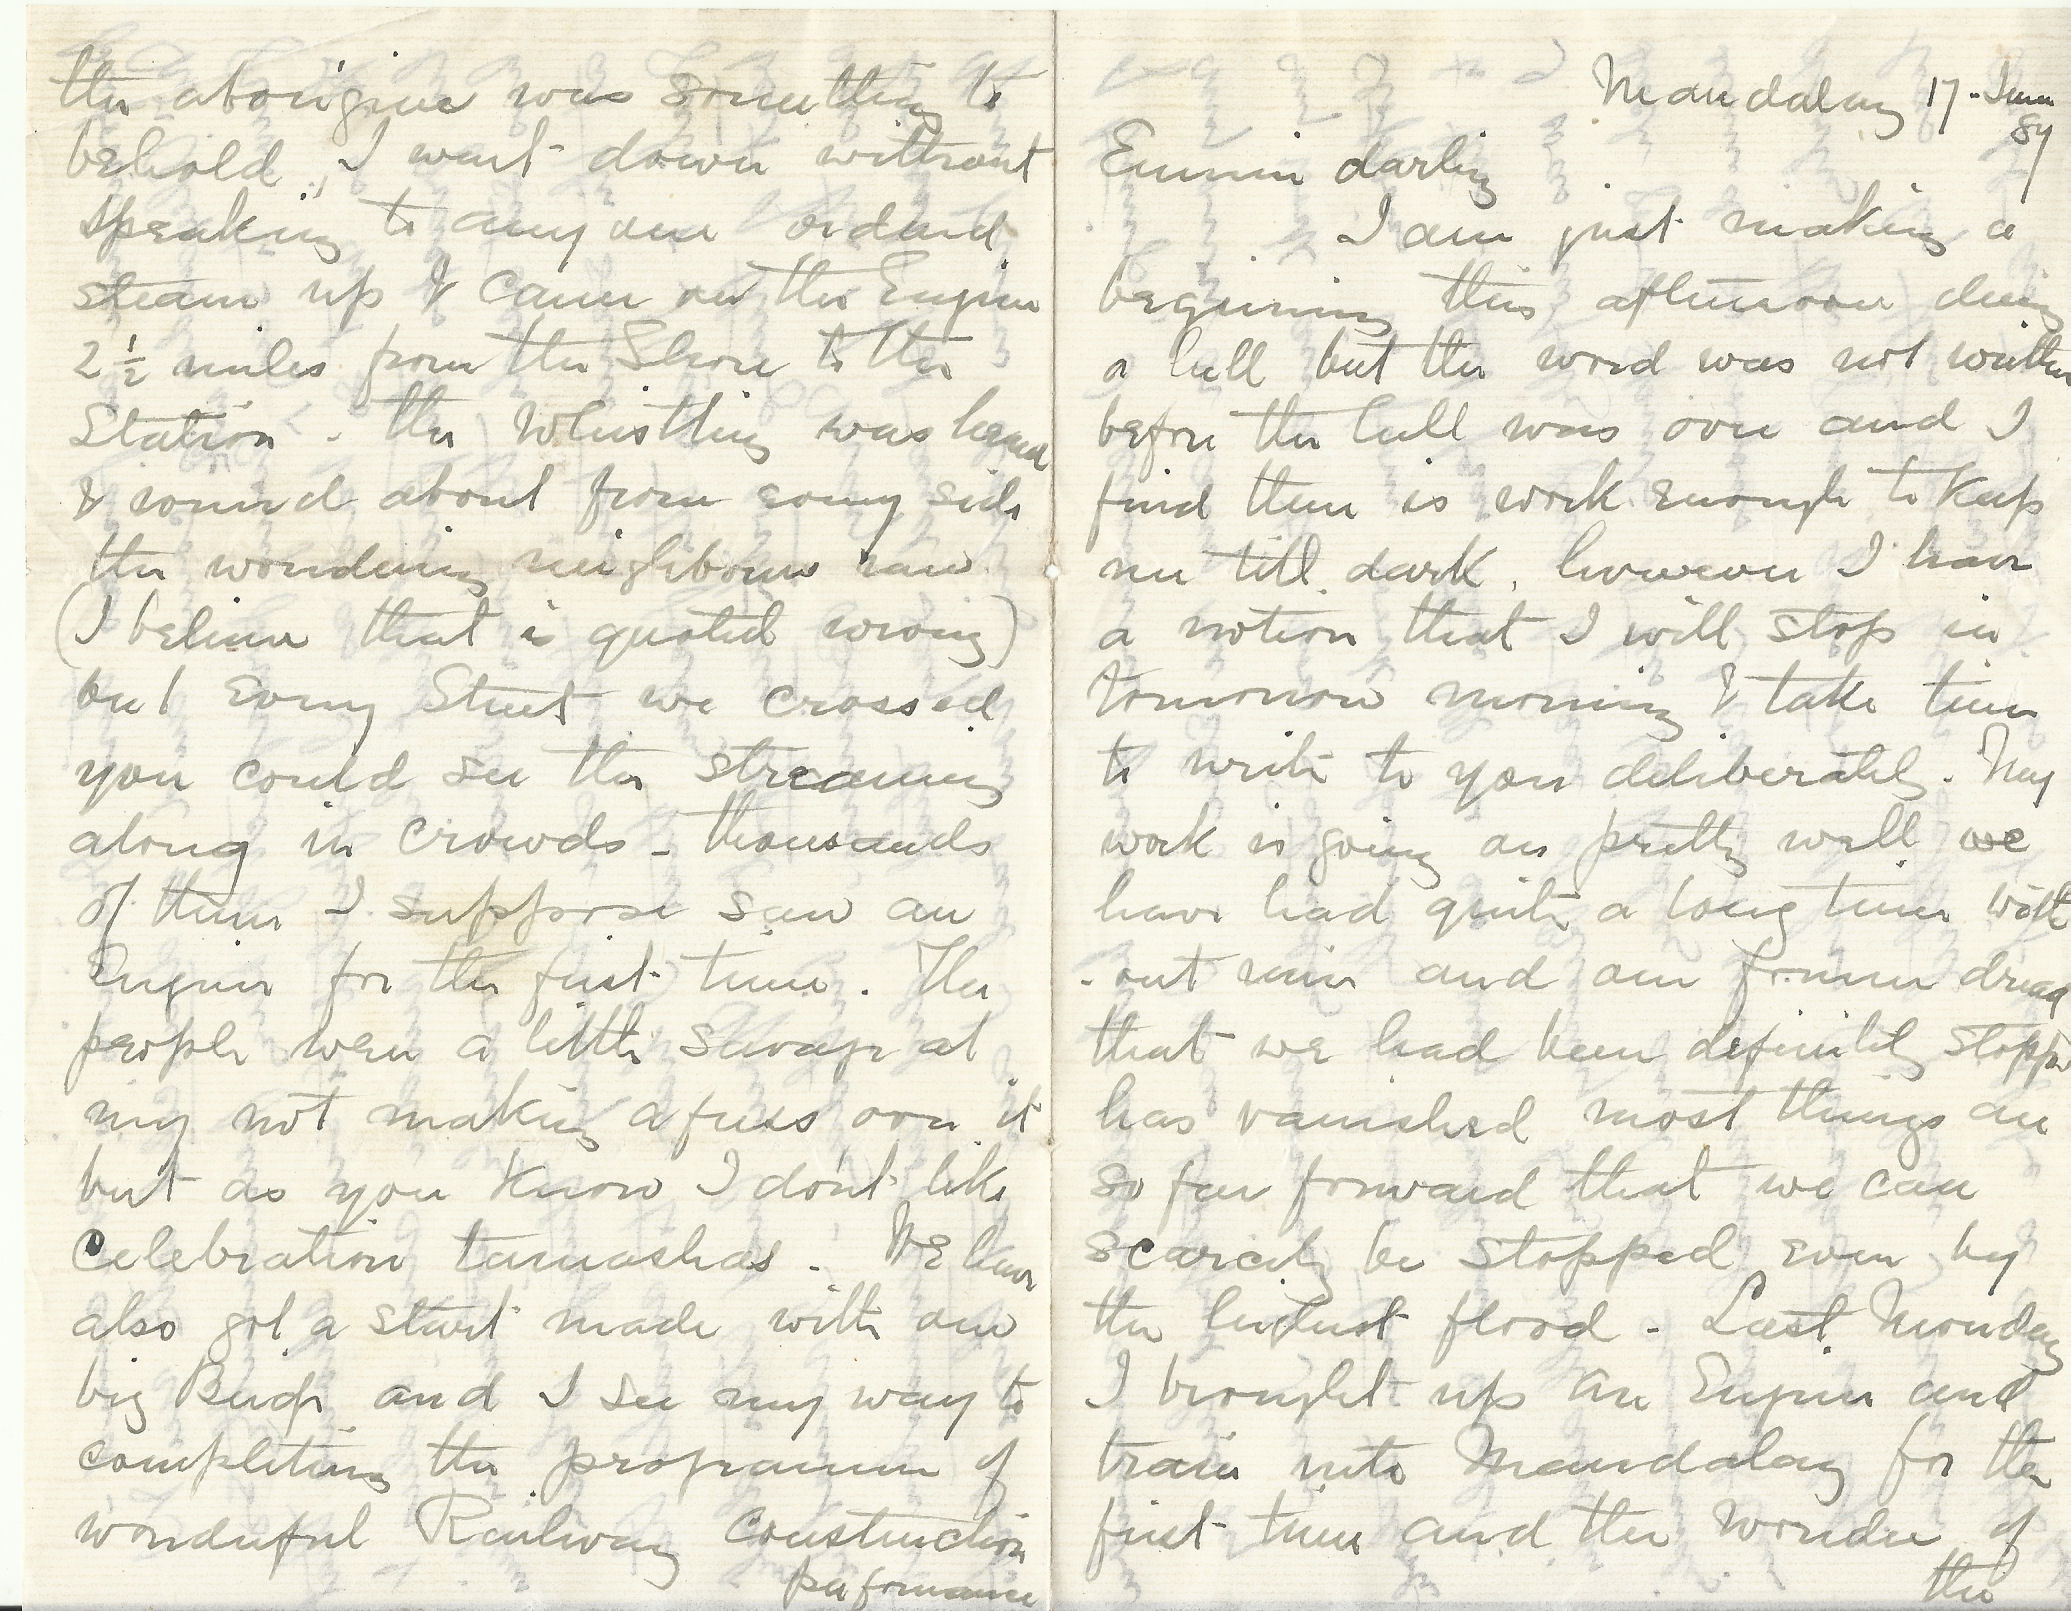 Mandalay 17 June
89
Emmie darling
I am just making a
beginning this afternoon during
a lull but the word was not written
before the lull was over and I
find there is work enough to keep
me till dark, however I have
a notion that I will stop in
tomorrow morning & take time
to write to you deliberately. My
work is going on pretty well we
have had quite a long time with
-out rain and our former dread
that we had been definitely stopped
has vanished most things are
so far forward that we can
scarcely be stopped even by
the highest flood - Last Monday
I brought up an Engine and
train into Mandalay for the
first time and the wonder of
the
the aborigines was something to
behold, I went down without
speaking to anyone ordered
steam up & came on the Engine
2½ miles from the Shore to the
Station - the whistling was heard
& round about from every side
the wondering neighbours ran
(I believe that is quoted wrong)
but every Street we crossed
you could see the streaming
along in crowds - thousands
of them I suppose saw an
Engine for the first time. The
people were a little savage at
my not making a fuss over it
but as you know I don't like
celebration tamashas. We have
also got a start made with our
big Bridge and I see my way to
completing the programme of
wonderful Railway construction
performance